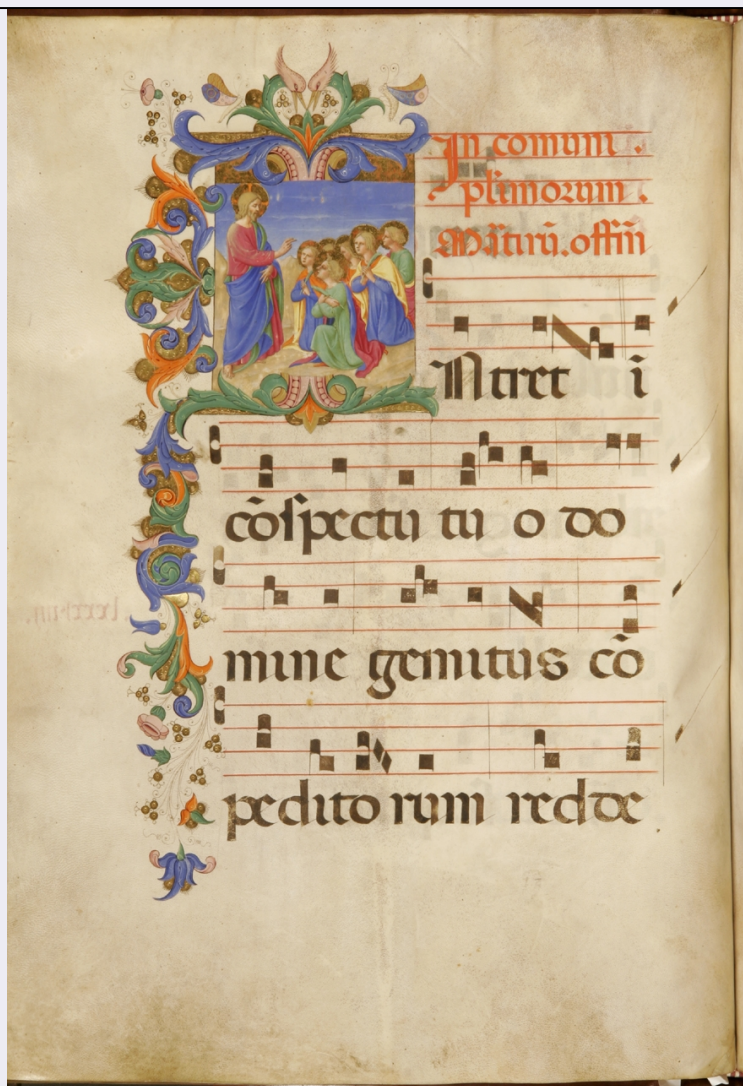 In comuni .
plimorum .
Mr̃tirũ. offiñ
Ntret ĩ
cõspectu tu o do
mine gemitus cõ
pedito rum redde